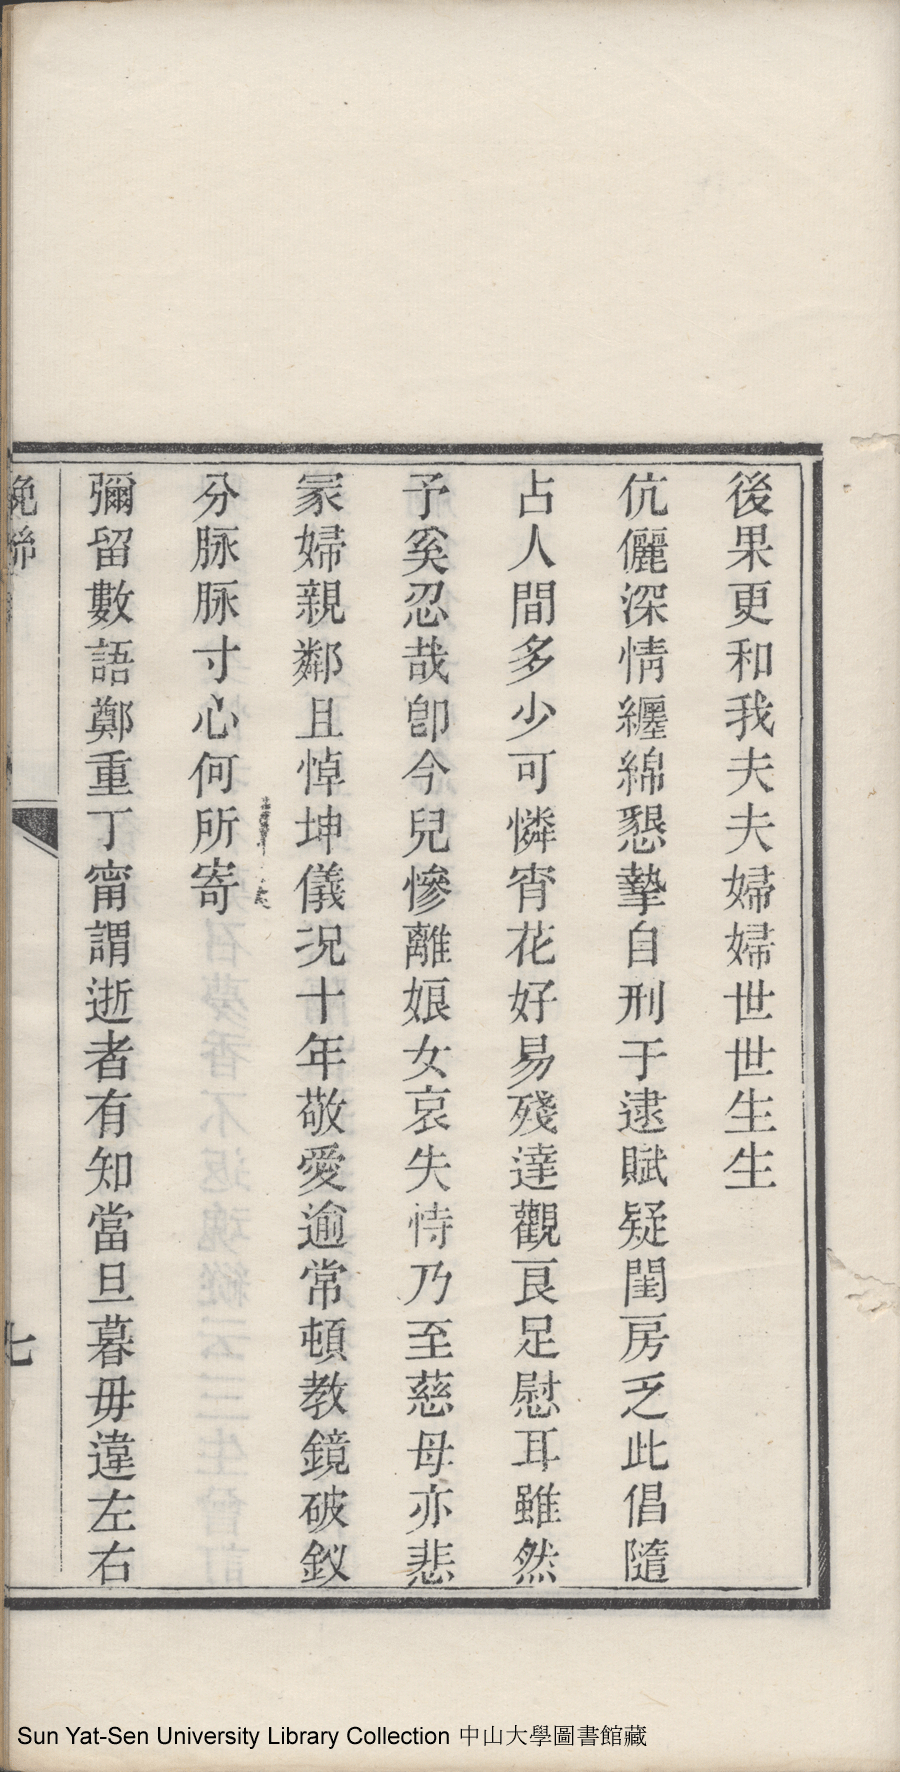 後果更和我夫夫婦婦世世生生
伉儷深情纏綿懇摯自刑于逮賦疑閨房乏此倡隨
占人間多少可憐宵花好易殘達觀良足慰耳雖然
予奚忍哉卽今兒慘離娘女哀失恃乃至慈母亦悲
冢婦親鄰且悼坤儀況十年敬愛逾常頓教鏡破釵
分脉脉寸心何所寄
彌留數語鄭重丁甯謂逝者有知當旦暮毋違左右
輓聯
七
Sun Yat-Sen University Library Collection 中山大學圖書館藏